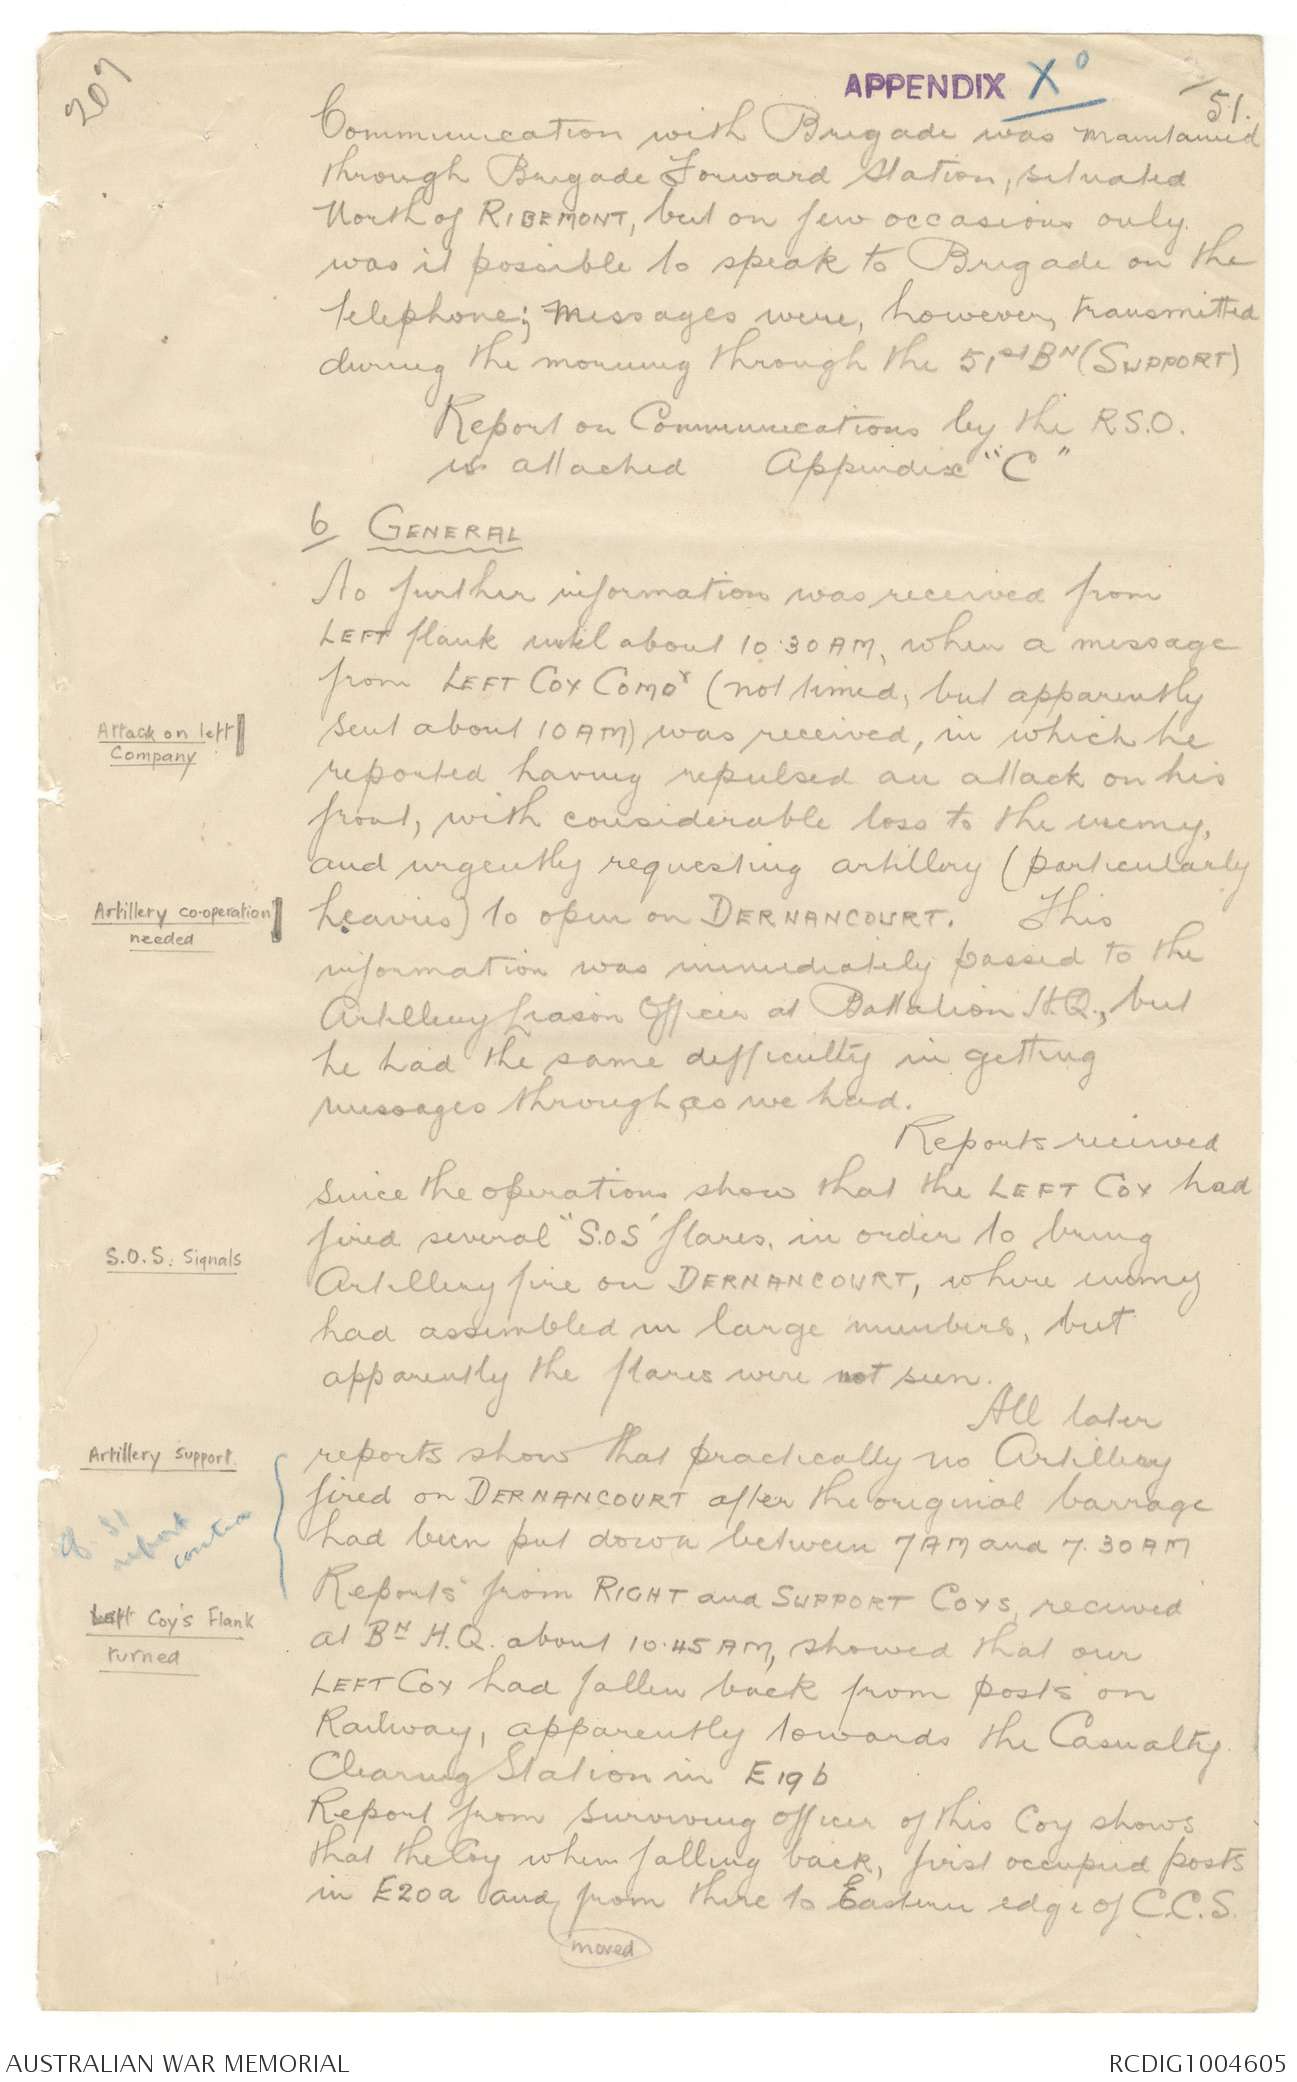 207
APPENDIX X
51.
Communication with Brigade was maintained
through Brigade Forward Station, situated
North of RIBEMONT, but on few occasions only
was it possible to speak to Brigade on the
telephone; messages were, however, transmitted
during the morning through the 51st BN (SUPPORT)
Report on Communications by the R.S.O.
is attached Appendix "C"
6 GENERAL
No further information was received from
LEFT flank until about 10.30 AM, when a message
from LEFT COY COMDR (not timed, but apparently
sent about 10 AM) was received, in which he
Attack on left
Company
reported having repulsed an attack on his
front, with considerable loss to the enemy,
and urgently requesting artillery (particularly
Artillery co-operation
needed
heavies) to open on DERNANCOURT. This
information was immediately passed to the
Artillery Liason Officer at Battalion H.Q., but
he had the same difficulty in getting
messages through as we had.
Reports received
since the operations show that the LEFT COY had
fired several "S.O.S" flares, in order to bring
S.O.S. Signals
Artillery fire on DERNANCOURT, where enemy
had assembled in large numbers, but
apparently the flares were not seen.
All later
Artillery support.
reports show that practically no Artillery
fired on DERNANCOURT after the original barrage
had been put down between 7 AM and 7.30 AM
51
report
contra
Reports from RIGHT and SUPPORT COYS, received
Left Coy's Flank
turned
at BN H.Q. about 10.45 AM, showed that our
LEFT COY had fallen back from posts on
Railway, apparently towards the Casualty
Clearing Station in E19b
Report from surviving officer of this Coy shows
that the Coy when falling back, first occupied posts
in E20a and from there to Eastern edge of C.C.S.
moved
AUSTRALIAN WAR MEMORIAL
RCDIG1004605